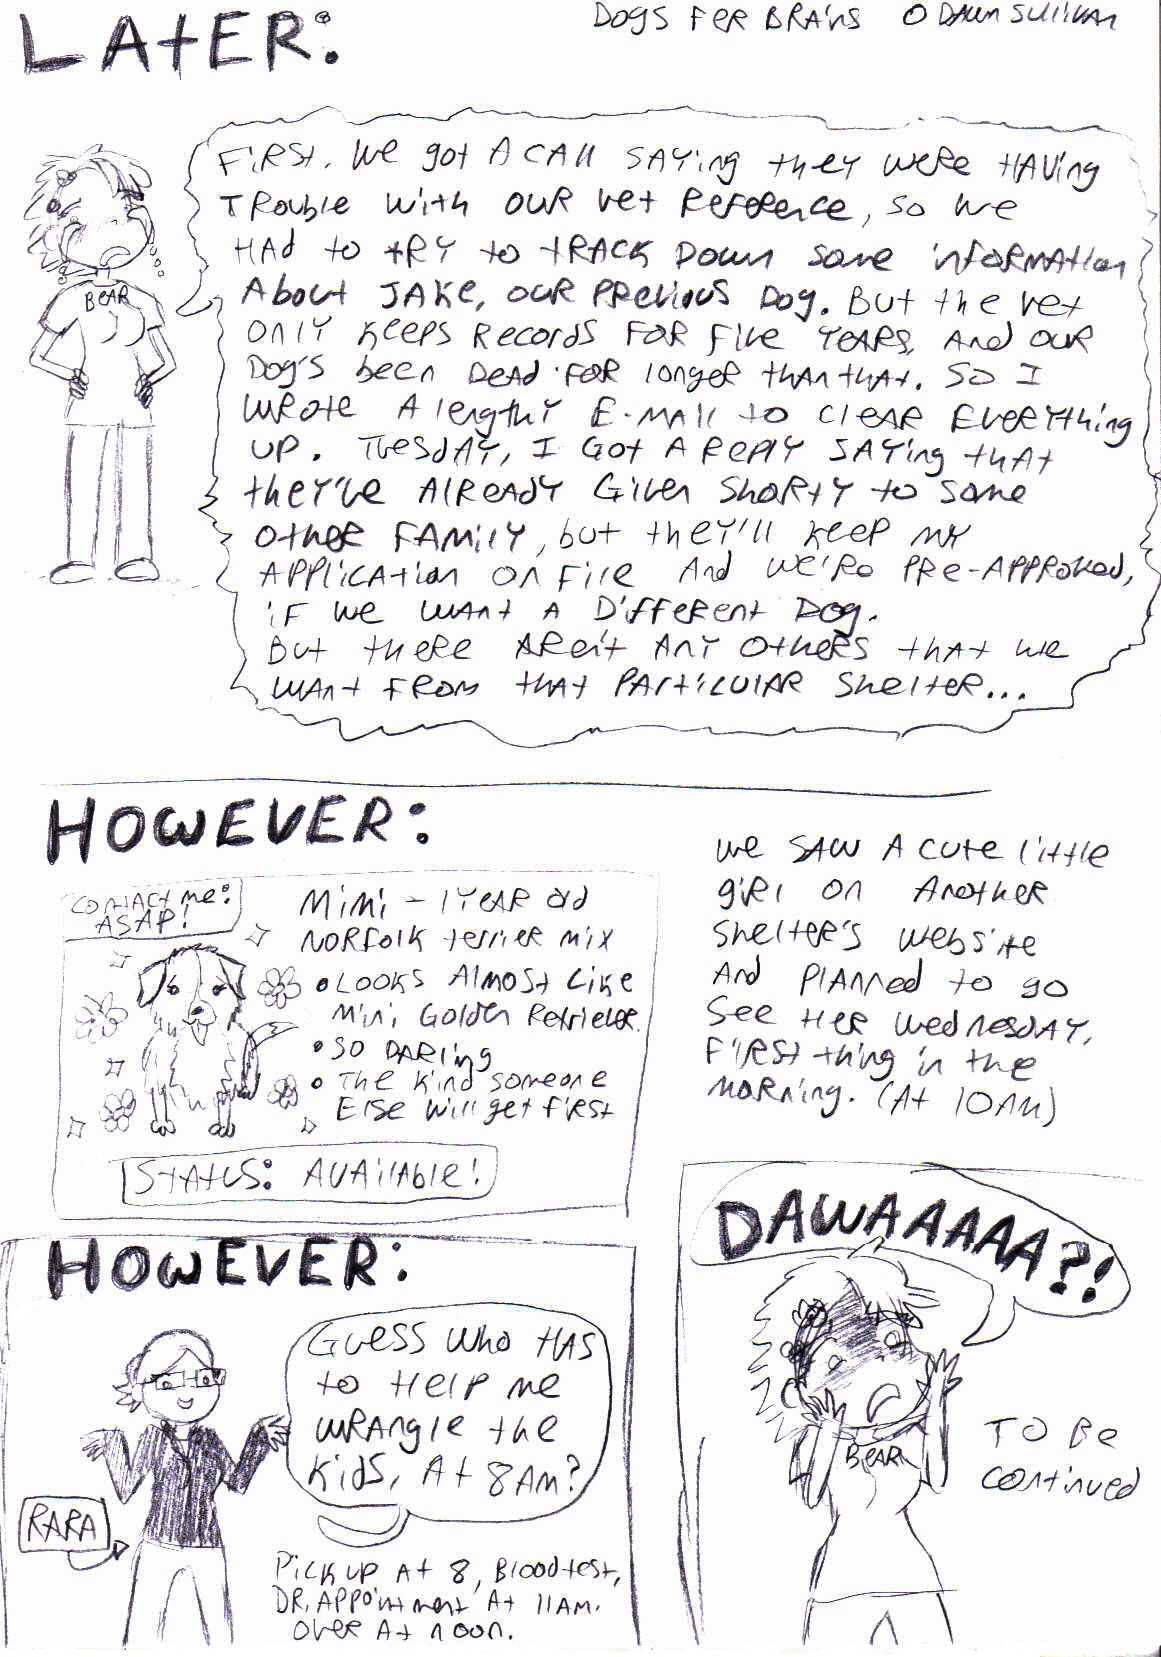 LATER:
DOGS FER BRAINS © DAWN SULLIVAN
FIRST. WE GOT A CALL SAYING THEY WERE HAVING
TROUBLE WITH OUR VET REFERENCE, SO WE
HAD TO TRY TO TRACK DOWN SOME INFORMATION
ABOUT JAKE, OUR PREVIOUS DOG. BUT THE VET
ONLY KEEPS RECORDS FOR FIVE YEARS, AND OUR
DOG'S BEEN DEAD FOR LONGER THAN THAT. SO I
WROTE A LENGTHY E-MAIL TO CLEAR EVERYTHING
UP. TUESDAY, I GOT A REPLY SAYING THAT
THEY'VE ALREADY GIVEN SHORTY TO SOME
OTHER FAMILY, BUT THEY'LL KEEP MY
APPLICATION ON FILE AND WE'RE PRE-APPROVED,
IF WE WANT A DIFFERENT DOG.
BUT THERE AREN'T ANY OTHERS THAT WE
WANT FROM THAT PARTICULAR SHELTER...
BEAR
HOWEVER:
CONTACT ME:
ASAP!
MIMI - 1 YEAR OLD
NORFOLK TERRIER MIX
• LOOKS ALMOST LIKE
MINI GOLDEN RETRIEVER.
• SO DARLING
• THE KIND SOMEONE
ELSE WILL GET FIRST
STATUS: AVAILABLE!
WE SAW A CUTE LITTLE
GIRL ON ANOTHER
SHELTER'S WEBSITE
AND PLANNED TO GO
SEE HER WEDNESDAY,
FIRST THING IN THE
MORNING. (AT 10AM)
HOWEVER:
GUESS WHO HAS
TO HELP ME
WRANGLE THE
KIDS, AT 8AM?
RARA
PICK UP AT 8, BLOODTEST,
DR. APPOINTMENT AT 11AM.
OVER AT NOON.
DAWAAAAA?!
BEAR
TO BE
CONTINUED